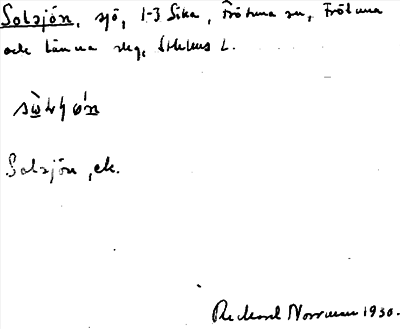 Solsjön, sjö, 1-3 Sika, Frötuna sn, Frötuna
och Länna skg, Sthlms L.
Solsjön, ek.
Rickard Norrman 1930.